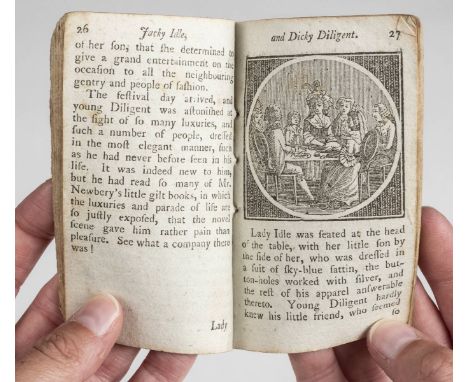 26 Jacky Idle,
of her son, that she determined to
give a grand entertainment on the
occasion to all the neighbouring
gentry and people of fashion.
The festival day arrived, and
young Diligent was astonished at
the sight of so many luxuries, and
such a number of people, dressed
in the most elegant manner, such
as he had never before seen in his
life. It was indeed new to him,
but he had read so many of Mr.
Newbery's little gilt books, in which
the luxuries and parade of life are
so justly exposed, that the novel
scene gave him rather pain than
pleasure. See what a company there
was!
Lady
and Dicky Diligent. 27
Lady Idle was seated at the head
of the table, with her little son by
the side of her, who was dressed in
a suit of sky-blue sattin, the but-
ton-holes worked with silver, and
the rest of his apparel answerable
thereto. Young Diligent hardly
knew his little friend, who seemed
so